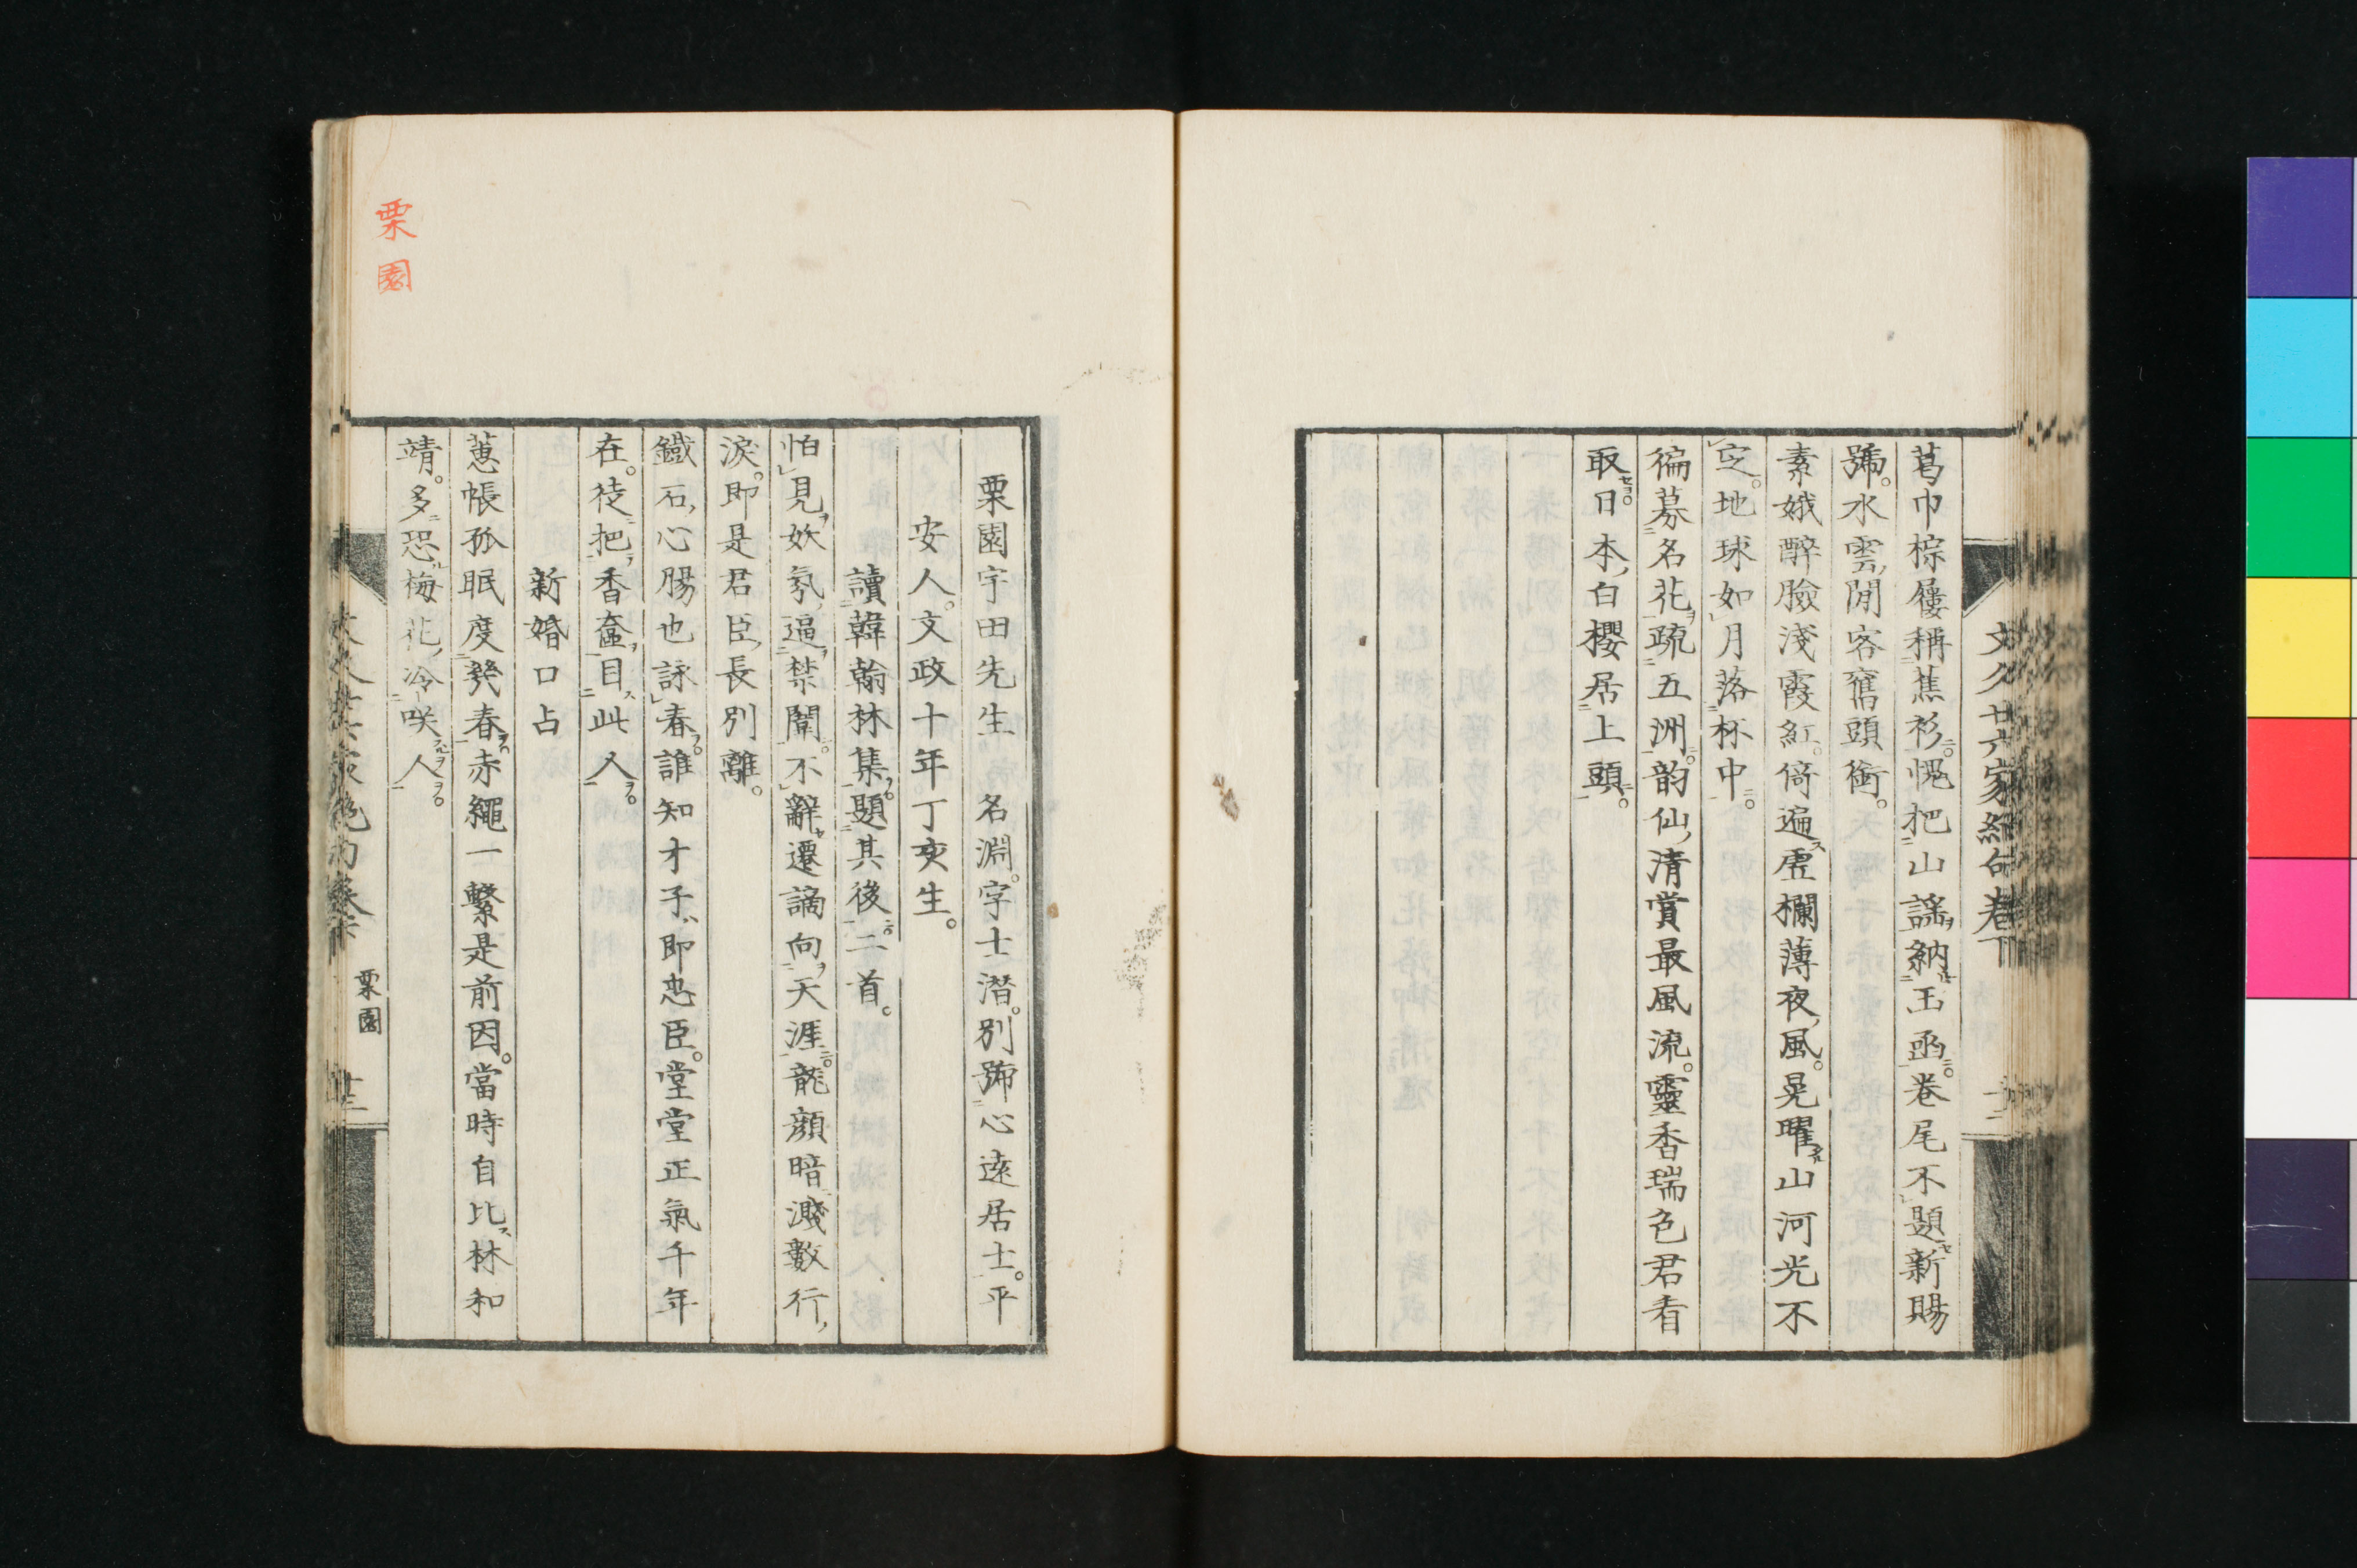 文久廿六家絶句卷下
十二
葛巾棕屨稱蕉衫愧把山謠納玉函卷尾不題新賜
號水雲閒客舊頭銜
素娥醉臉淺霞紅倚遍虚欄薄夜風晃曜山河光不
定地球如月落杯中
徧募名花疏五洲韵仙清賞最風流靈香瑞色君看
取日本白櫻居上頭
栗園宇田先生 名淵字士潛別號心遠居士平
安人文政十年丁亥生
讀韓翰林集題其後二首
怕見妖氛逼禁闈不辭遷謫向天涯龍顔暗濺數行
淚即是君臣長別離
鐵石心腸也詠春誰知才子即忠臣堂堂正氣千年
在徒把香奩目此人
新婚口占
蕙帳孤眠度幾春赤繩一繫是前因當時自比林和
靖多恐梅花冷咲人
栗園
栗園